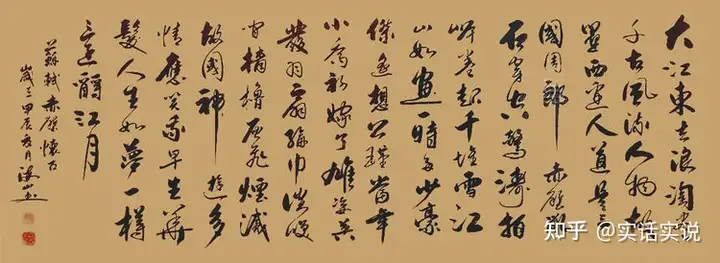 大江東去浪淘盡
千古風流人物故
壘西邊人道是三
國周郎 赤壁亂
石穿空驚濤拍
岸卷起千堆雪江
山如畫一時多少豪
傑遙想公瑾當年
小喬初嫁了雄姿英
發羽扇綸巾談笑
間檣櫓灰飛煙滅
故國神遊多
情應笑我早生華
髮人生如夢一樽
還酹江月
蘇軾赤壁懷古
歲在甲辰
知乎 @实话实说